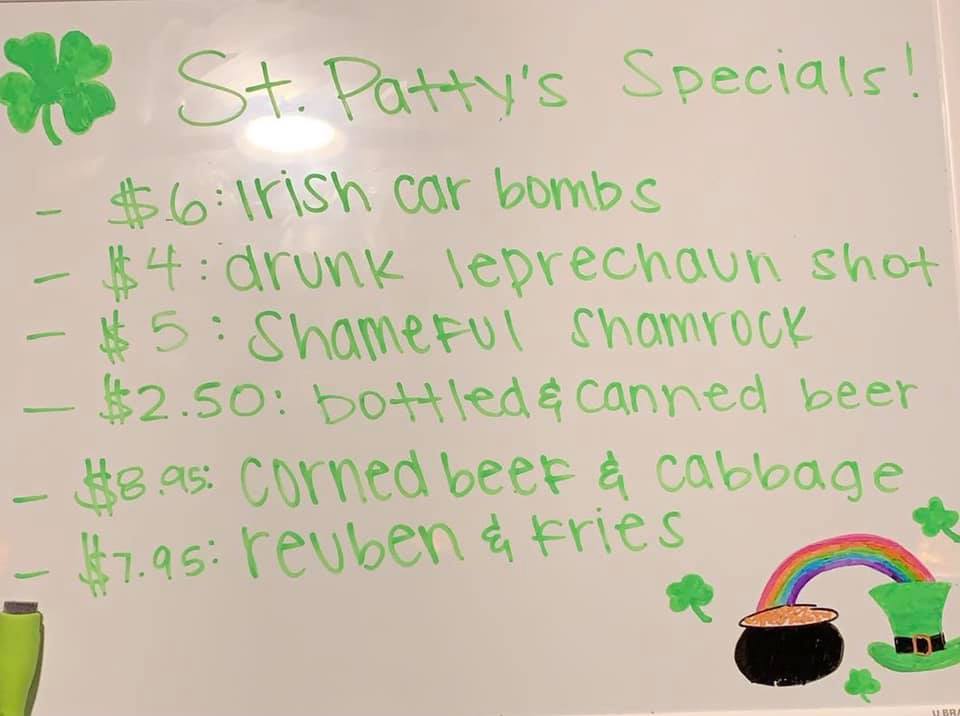 St. Patty's Specials!
- $6: Irish car bombs
- $4: drunk leprechaun shot
- $5: Shameful Shamrock
- $2.50: bottled & canned beer
- $8.95: corned beef & cabbage
- $7.95: reuben & fries